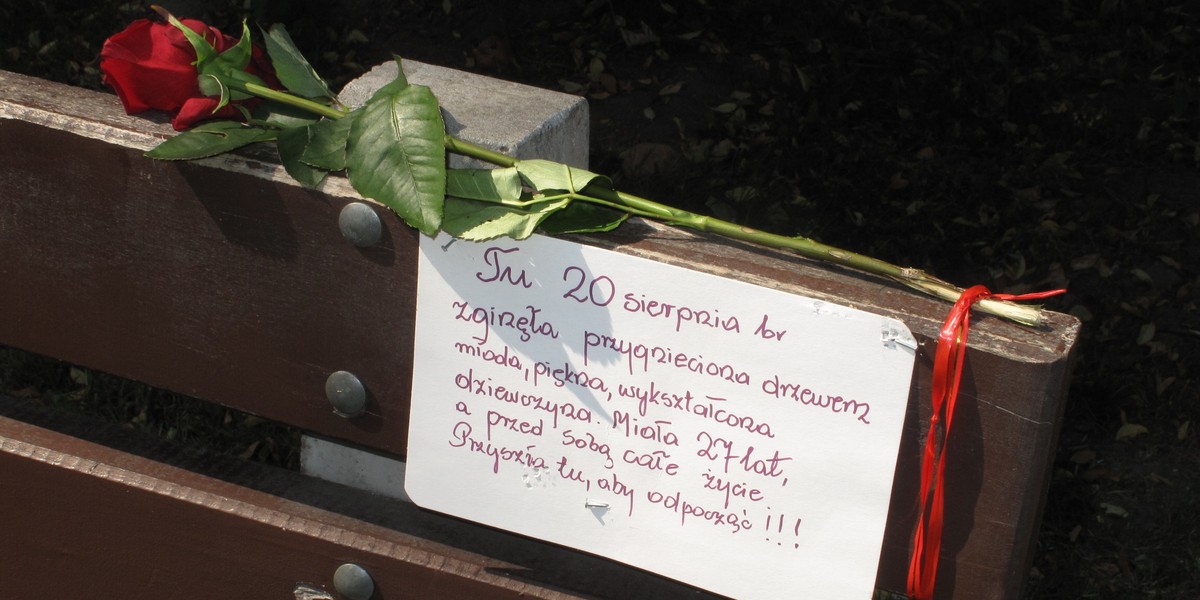 Tu 20 sierpnia br
zginęła przygnieciona drzewem
młoda, piękna, wykształcona
dziewczyna. Miała 27 lat,
a przed sobą całe życie
Przyszła tu, aby odpocząć !!!